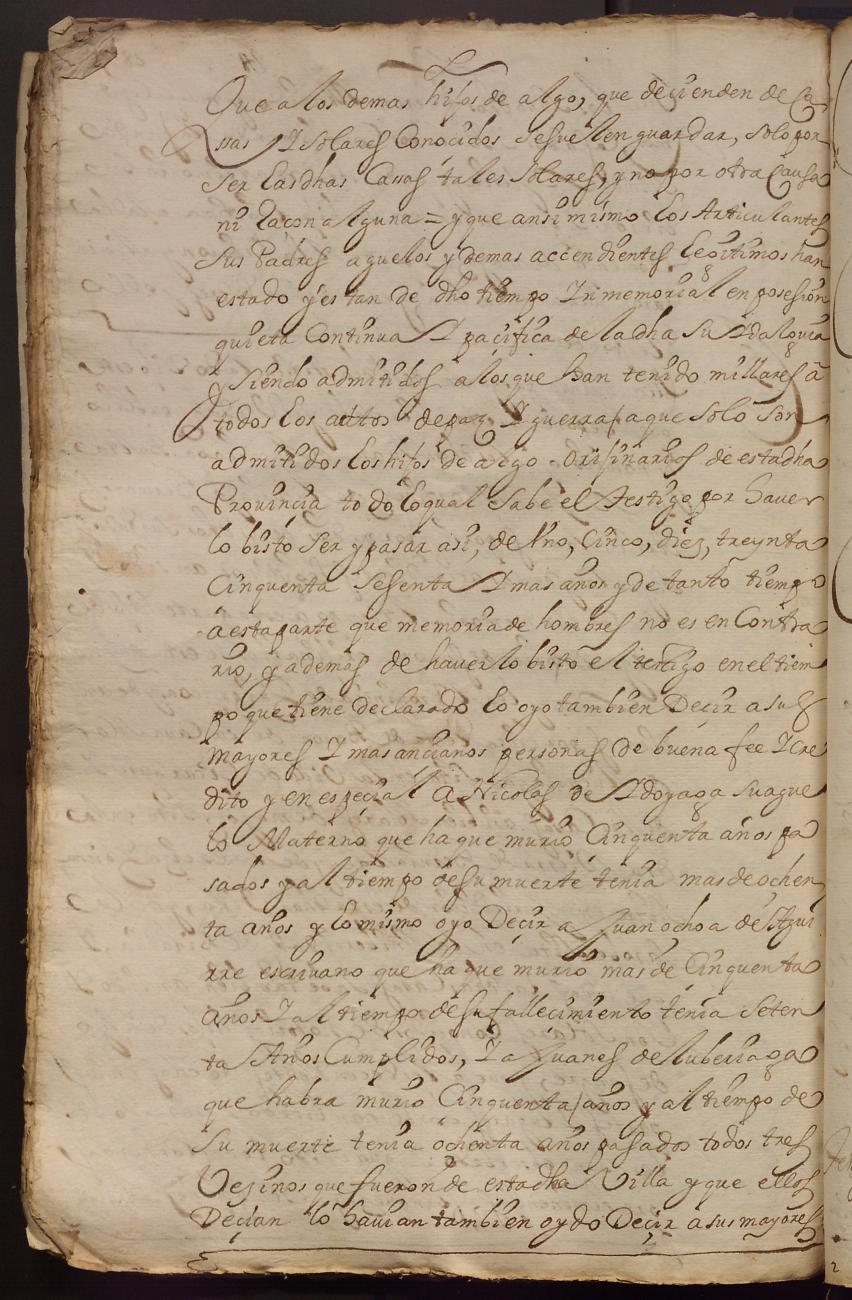 Que a los demas hijos de algo, que decienden de Ca
ssas Y solares Conocidos se suelen guardar, solo por
ser las dhas Cassas tales solares, y no por otra Causa
ni Raçon alguna = y que ansi mismo los Articulantes
sus Padres aguelos y demas accendientes legitimos han
estado y estan de dho tiempo Inmemorial en posesion
quieta Continua Y pacifica de la dha su Ydalguia
y siendo admitidos a los que han tenido millares â
todos los auttos de paz Y guerra / a que solo son
admitidos los hijos de algo originarios de esta dha
Provincia todo lo qual sabe el testigo por haver
lo bisto ser y pasar asi, de Uno, Cinco, diez, treynta
Cinquenta sesenta Y mas años y de tanto tiempo
a esta parte que memoria de hombres no es en Contra
rio, y ademas de haverlo bisto el testigo en el tiem
po que tiene declarado lo oyo tambien Decir a sus
mayores Y mas ancianos personas de buena fee Y cre
dito y en especial a Nicolas de Ydoyaga su ague
lo Materno que ha que murio Cinquenta años pa
sados y al tiempo de su muerte tenia mas de ochen
ta años y lo mismo oyo Decir a Juan ochoa de Agui
rre escrivano que ha que murio mas de Cinquenta
años Y al tiempo de su fallecimiento tenia Seten
ta Años Cumplidos, Y a Juanes de luberiaga
que habra murio Cinquenta / años y al tiempo de
su muerte tenia ochenta años pasados todos tres
Vezinos que fueron de esta dha Villa y que ellos
Decian lo havian tambien oydo Decir a sus mayores